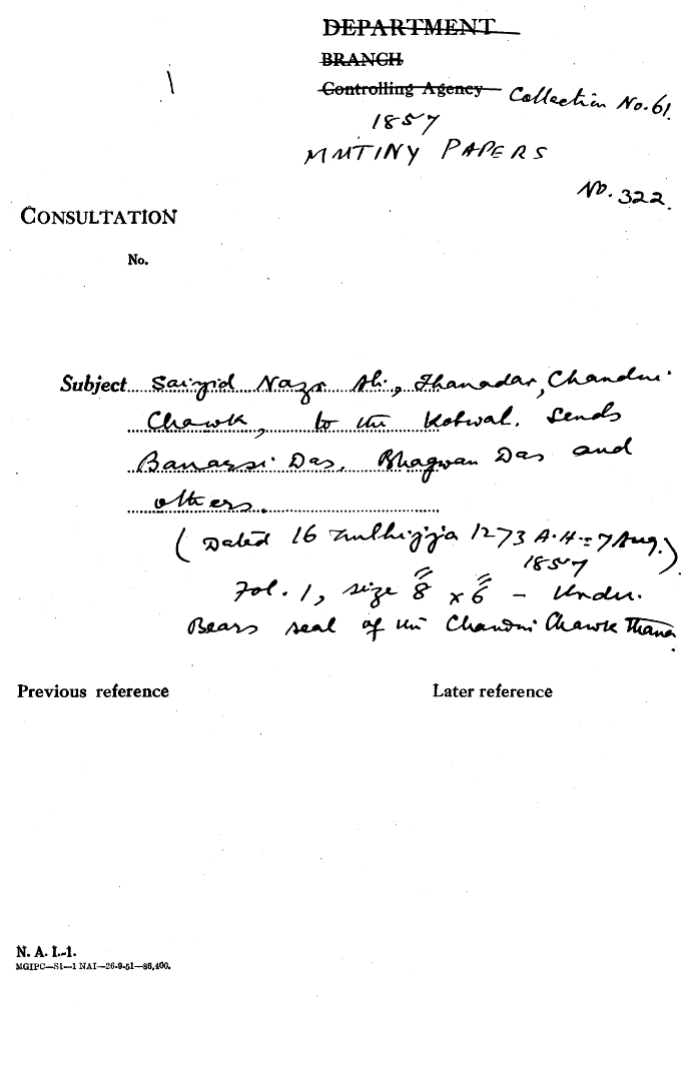 DEPARTMENT
BRANCH
Controlling Agency Collection No. 61.
1857
MUTINY PAPERS
No. 322.
CONSULTATION
No.
Subject Saiyid Nazr Ali, Thanadar, Chandni
Chawk, to the Kotwal. Sends
Banarsi Das, Bhagwan Das and
others.
(Dated 16 Zulhijja 1273 A.H. = 7 Aug.
1857)
Fol. 1, size 8" x 6" - Urdu.
Bears seal of the Chandni Chawk Thana.
Previous reference Later reference
N. A. I.-1.
MGIPC—S1—1 NAI—26-9-51—86,400.